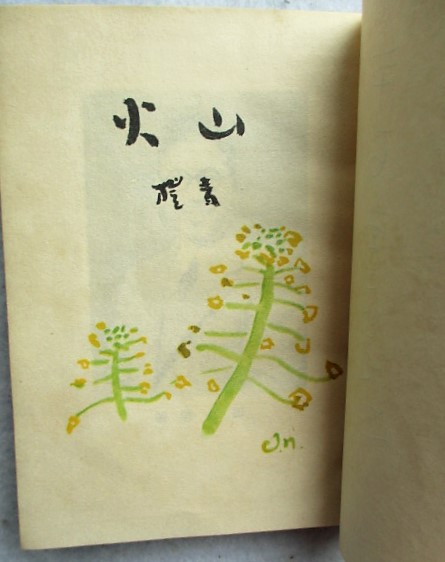 火山
橙青
J.n.